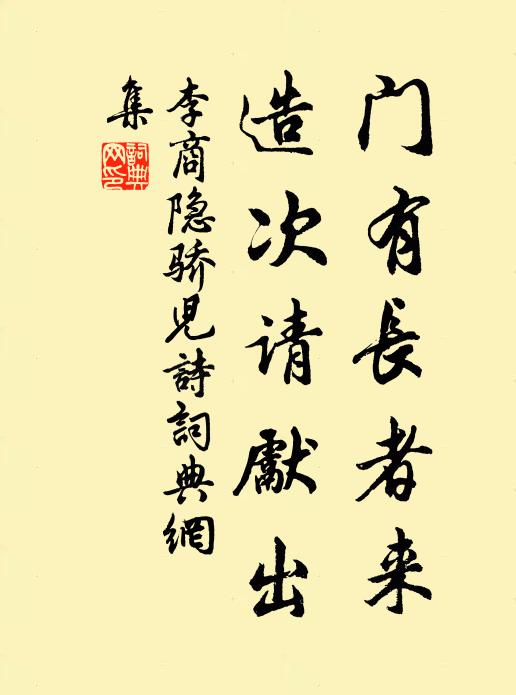 门有長者来
造次请獻出
李商隐骄児詩詞典網
集
詞典网印